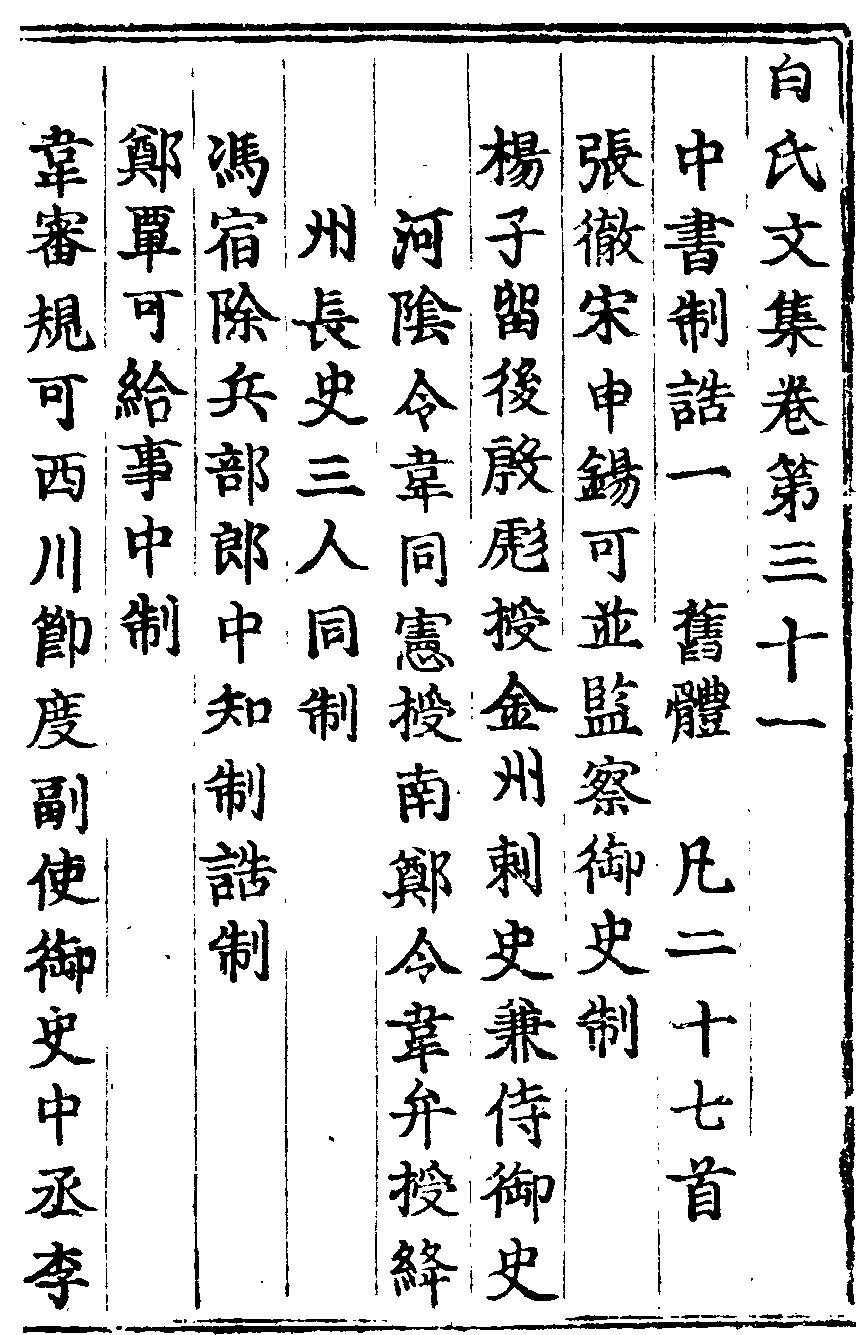 白氏文集卷第三十一
中書制誥一 舊體 凡二十七首
張徹宋申錫可並監察御史制
楊子留後殷彪授金州刺史兼侍御史
河陰令韋同憲授南鄭令韋弁授絳
州長史三人同制
馮宿除兵部郎中知制誥制
鄭覃可給事中制
韋審規可西川節度副使御史中丞李